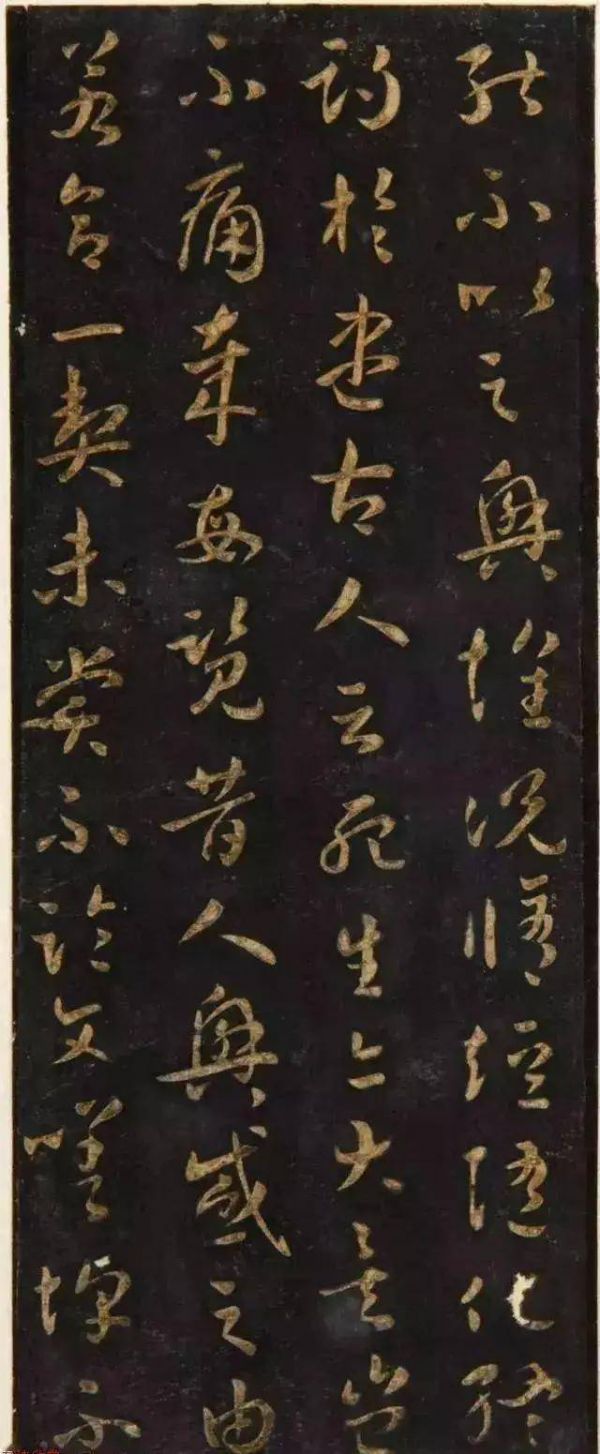 能不以之興懷況脩短隨化終
期於盡古人云死生亦大矣豈
不痛哉每覽昔人興感之由
若合一契未嘗不臨文嗟悼不